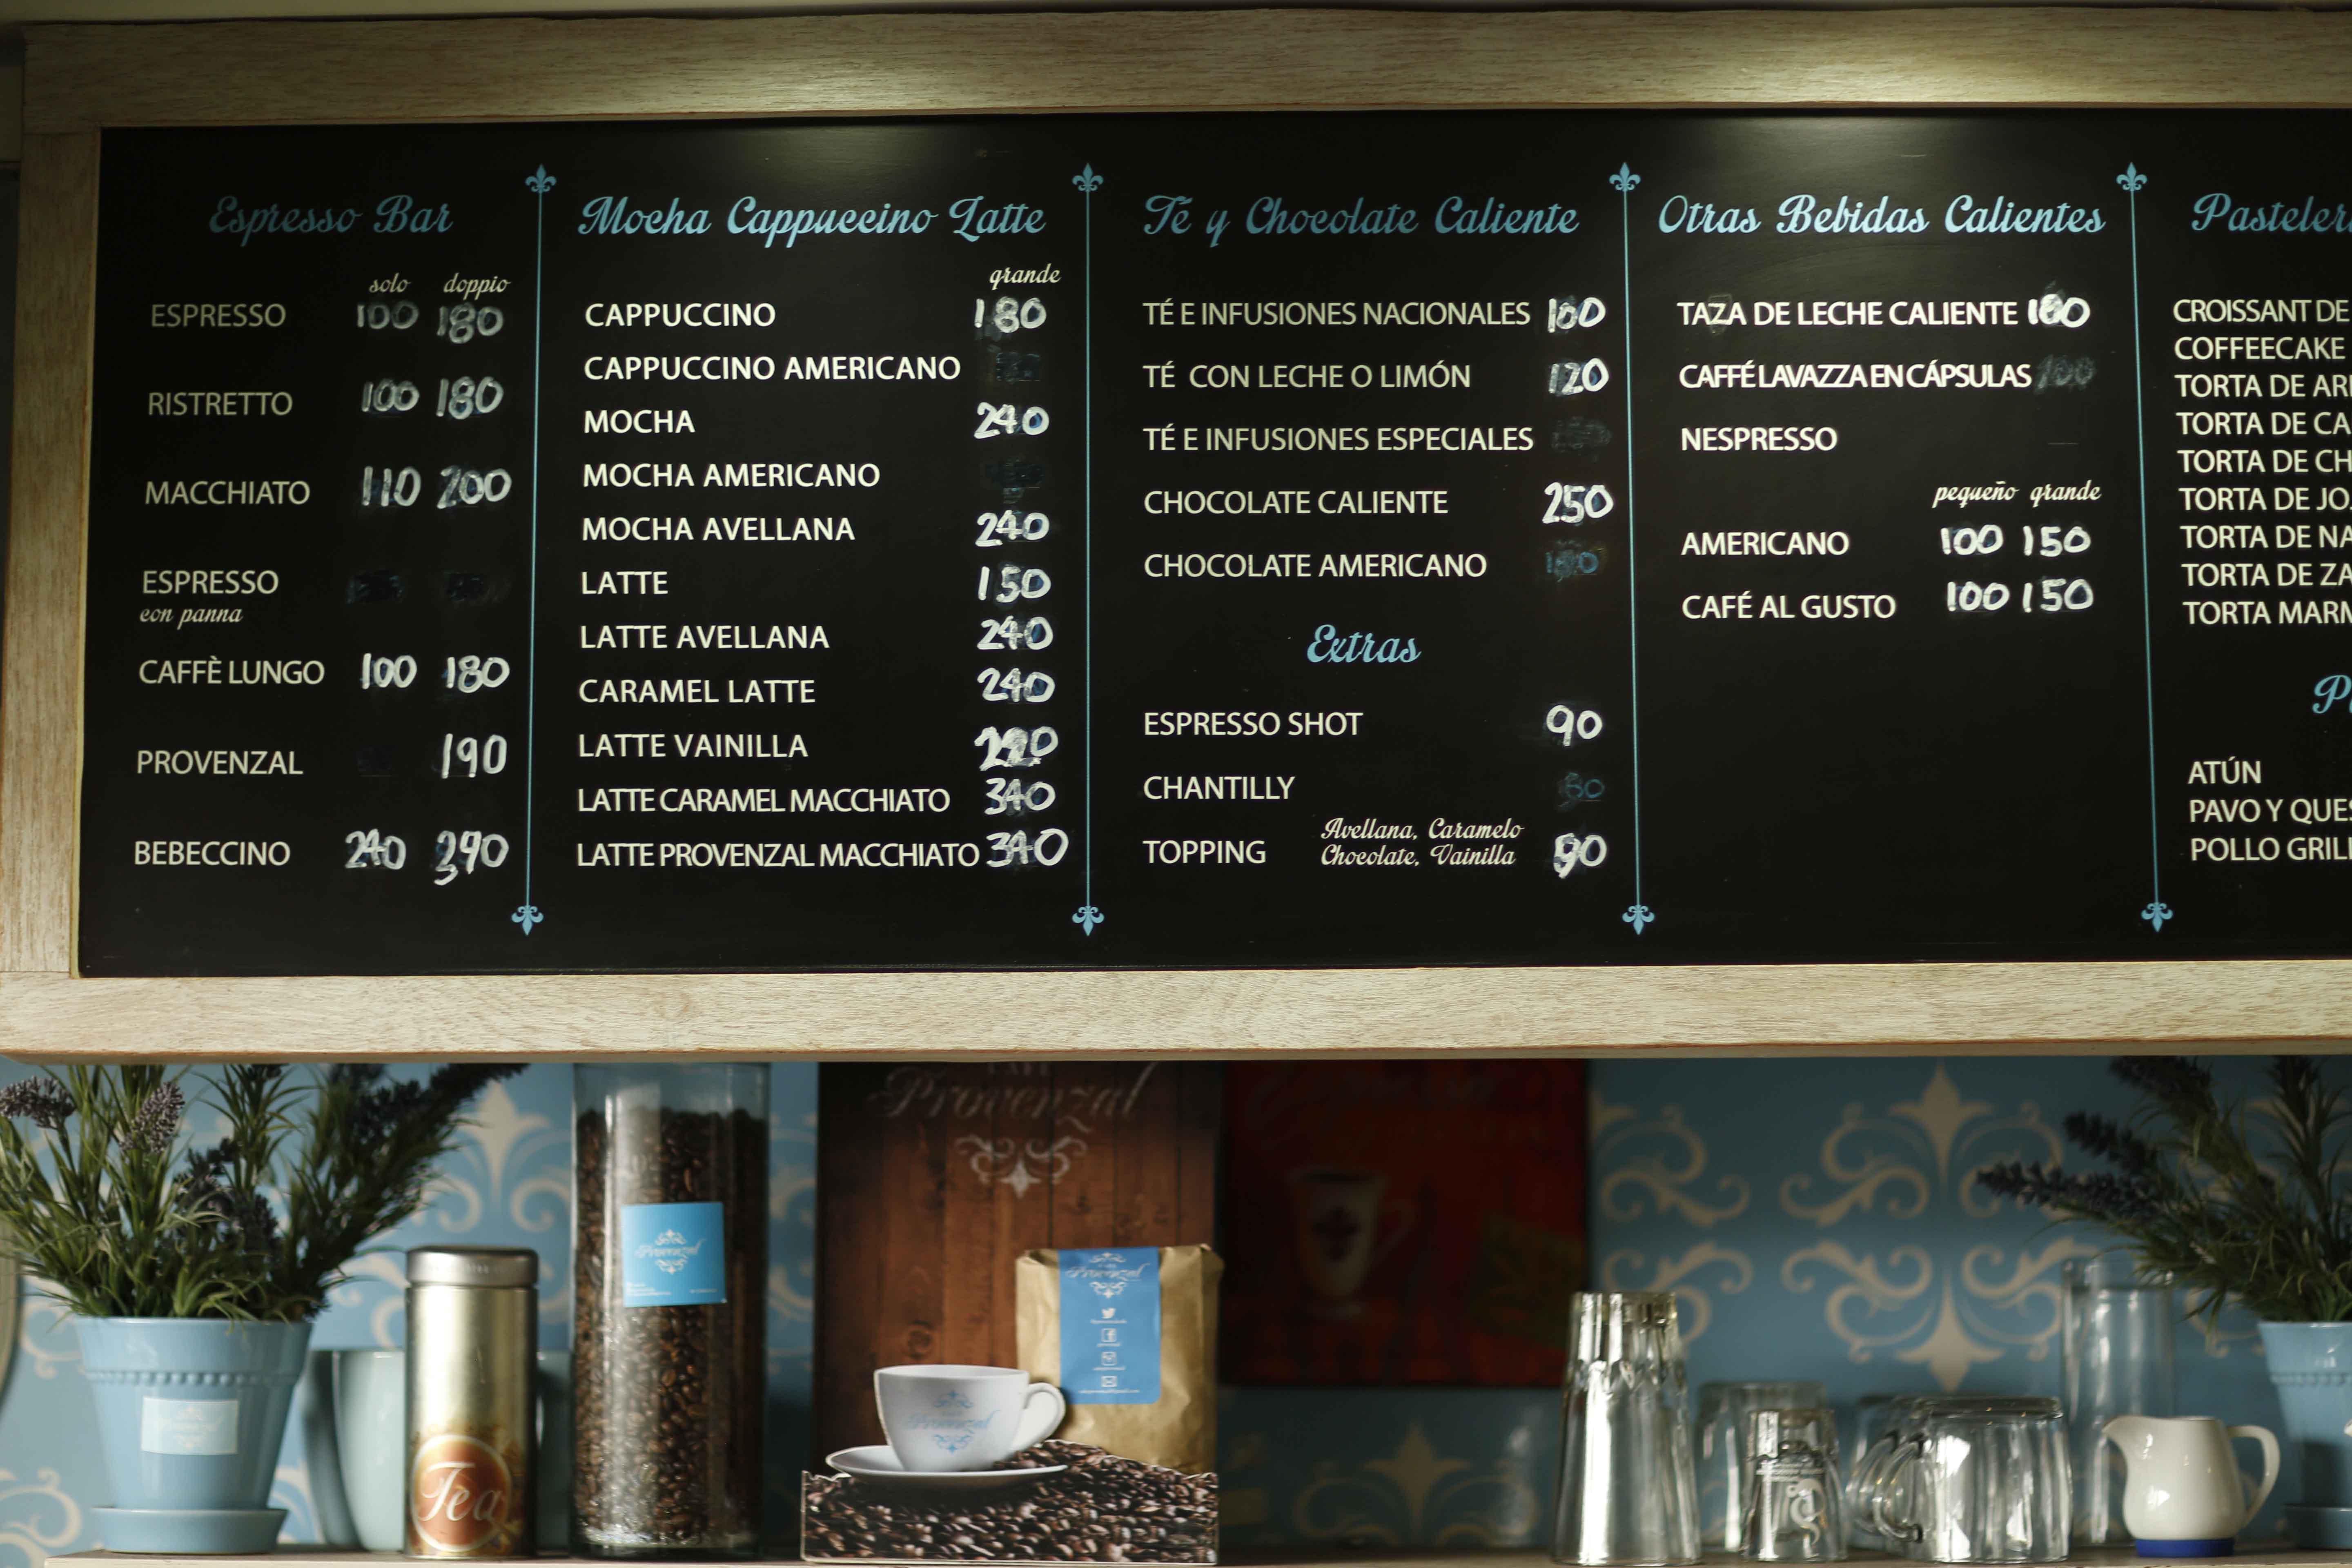 Espresso Bar
solo doppio
ESPRESSO 100 180
RISTRETTO 100 180
MACCHIATO 110 200
ESPRESSO
con panna
CAFFÈ LUNGO 100 180
PROVENZAL 190
BEBECCINO 240 390
Mocha Cappuccino Latte
grande
CAPPUCCINO 180
CAPPUCCINO AMERICANO
MOCHA 240
MOCHA AMERICANO
MOCHA AVELLANA 240
LATTE 150
LATTE AVELLANA 240
CARAMEL LATTE 240
LATTE VAINILLA
LATTE CARAMEL MACCHIATO 340
LATTE PROVENZAL MACCHIATO 340
Té y Chocolate Caliente
TÉ E INFUSIONES NACIONALES 100
TÉ CON LECHE O LIMÓN 120
TÉ E INFUSIONES ESPECIALES
CHOCOLATE CALIENTE 250
CHOCOLATE AMERICANO
Extras
ESPRESSO SHOT 90
CHANTILLY 80
TOPPING Avellana, Caramelo
Chocolate, Vainilla 90
Otras Bebidas Calientes
TAZA DE LECHE CALIENTE 180
CAFFÉ LAVAZZA EN CÁPSULAS 100
NESPRESSO
pequeño grande
AMERICANO 100 150
CAFÉ AL GUSTO 100 150
Pasteler
CROISSANT DE
COFFEECAKE
TORTA DE AR
TORTA DE CA
TORTA DE CH
TORTA DE JO
TORTA DE NA
TORTA DE ZA
TORTA MARM
P
ATÚN
PAVO Y QUES
POLLO GRIL
Provenzal
Provenzal
Provenzal
Provenzal
Tea